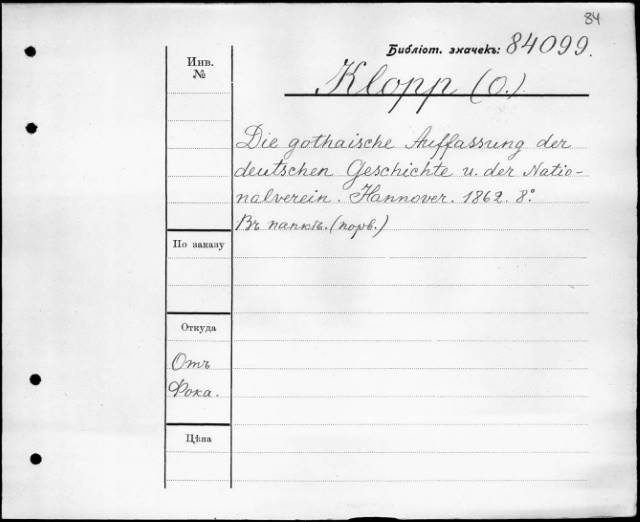 84
Библіот. значекъ: 84099.
Инв.
№
Klopp (O.)
Die gothaische Auffassung der
deutschen Geschichte u. der Natio-
nalverein. Hannover. 1862. 8°.
Въ папкѣ. (порв.)
По заказу
Откуда
Отъ
Фока.
Цѣна